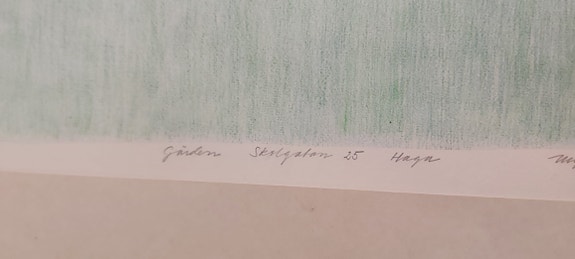 Gården Skolgatan 25 Haga